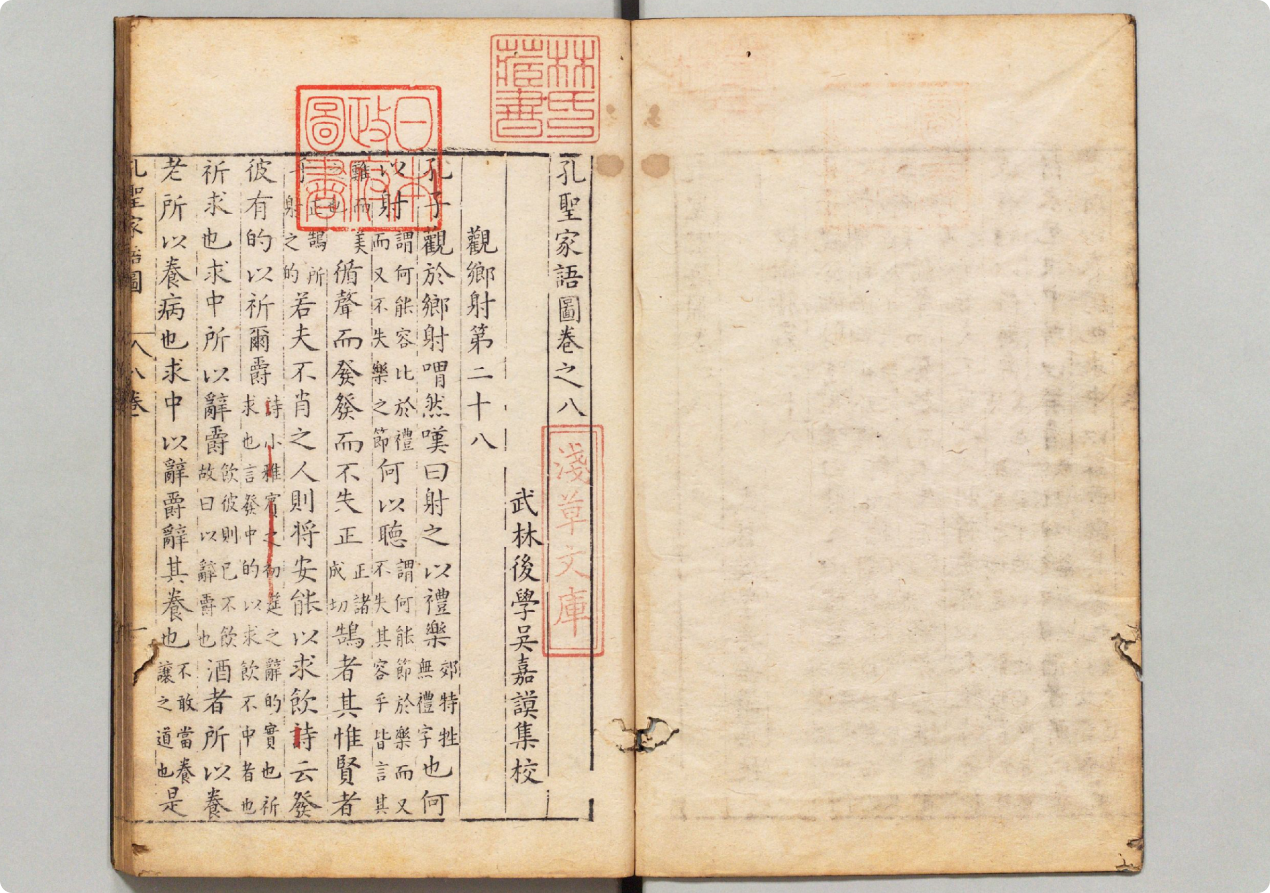 孔聖家語圖卷之八
武林後學吳嘉謨集校
觀鄉射第二十八
孔子觀於鄉射喟然嘆曰射之以禮樂郊特牲無禮字也何
以射謂何能容比於禮而又不失樂之節何以聽謂何能節於樂而又不失其容乎皆言其
難而美循聲而發發而不失正正諸成切鵠者其惟賢者
正鵠所射之的若夫不肖之人則將安能以求飲詩云發
彼有的以祈爾爵詩小雅賓之初筵之辭的實也祈求也言發中的以求飲不中者也
祈求也求中所以辭爵飲彼則已不飲故曰以辭爵也酒者所以養
老所以養病也求中以辭爵辭其養也不敢當養讓之道也是
孔聖家語圖
八卷
一
林氏藏書
日本政府圖書
淺草文庫